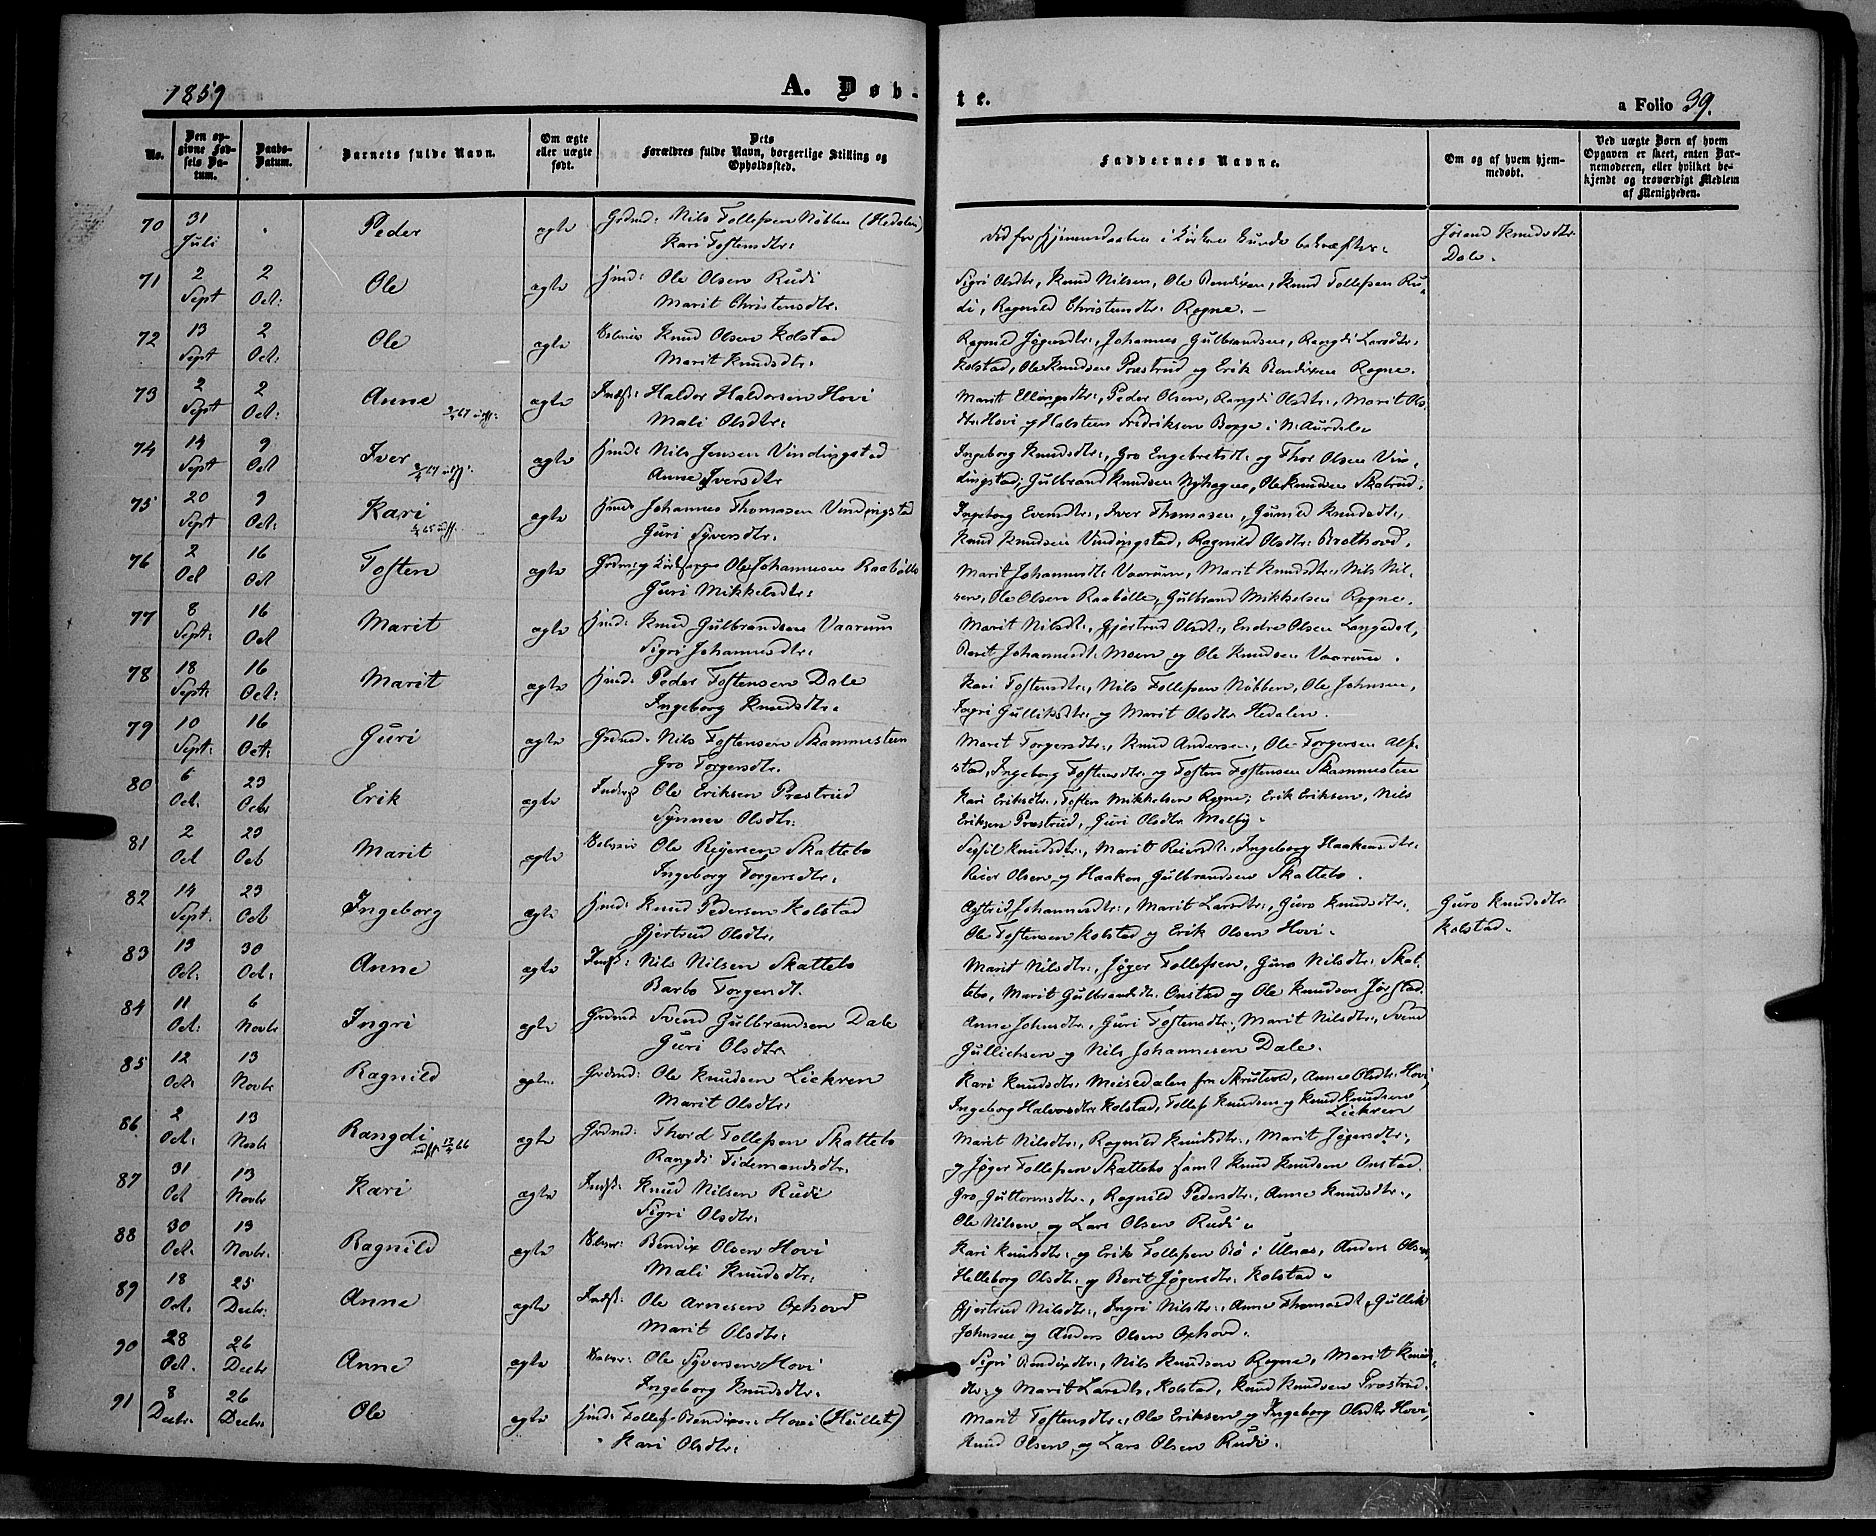 1859
A. Døb-
te.
a Folio 39.
No.
Den op-
givne Fød-
sels Da-
tum.
Daabs-
Datum.
Barnets fulde Navn.
Om ægte
eller uægte
født.
Dets
Forældres fulde Navn, borgerlige Stilling og
Opholdssted.
Faddernes Navne.
Om og af hvem hjem-
medøbt.
Ved uægte Børn af hvem
Opgaven er skeet, enten Bar-
nemoderen, eller hvilket be-
kjendt og troværdigt Medlem
af Menigheden.
70 31 Peder ægte Grdmd: Nils Tollefsen Nøbben (Hedalen) Jørand Knudsdtr
Juli Kari Tostensdtr: Dale.
71 2 2 Ole ægte Hmd: Ole Olsen Rudi Sigri Olsdtr, Knud Nilsen, Ole Bendixen, Knud Tollefsen Ru-
Sept Oct: Marit Christensdtr. di, Ragnild Christensdtr. Rogne.
72 13 2 Ole ægte Knud Olsen Kolstad Ragnild Jøgersdtr., Johannes Gulbrandsen, Rangdi Larsdtr.
Sept Oct: Marit Knudsdtr: Kolstad, Ole Knudsen Præstrud og Erik Bendixen Rogne.
73 2 2 Anne ægte Indst: Haldor Haldorsen Hovi Marit Ellingsdtr., Peder Olsen, Rangdi Olsdtr., Marit Ols-
Sept Oct: Mali Olsdtr: dtr: Hovi og Halsten Fredriksen i N. Aurdal.
74 14 9 Iver ægte Hmd: Nils Jensen Vindingstad Ingeborg Knudsdtr., Gro Engebretsdt: og Thor Olsen Vin-
Sept Oct Anne Iversdtr dingstad, Gulbrand Knudsen Nyhagen, Ole Knudsen Skatrud.
75 20 9 Kari ægte Hmd: Johannes Thomasen Vindingstad Ingeborg Evensdtr., Iver Thomasen, Gunild Knudsdt:,
Sept Oct: Guri Syversdtr: Knud Knudsen Vindingstad, Ragnild Olsdtr: Brathovd.
76 2 16 Tosten ægte Grdm. og Kirkesanger Ole Johannesen Raabølle Marit Johannesdt: Vaarum, Marit Knudsdtr., Nils Nil-
Oct Oct Guri Mikkelsdtr: sen, Ole Olsen Raabølle, Gulbrand Mikkelsen Rogne.
77 8 16 Marit ægte Hmd: Knud Gulbrandsen Vaarum Marit Nilsdt., Gjertrud Olsdt:, Endre Olsen Langedal,
Sept: Oct Sigri Johannesdtr: Berit Johannesdt: Moen og Ole Knudsen Vaarum.
78 18 16 Marit ægte Hmd: Peder Tostensen Dale Kari Tostensdtr., Nils Tollefsen Nøbben, Ole Johnsen,
Sept: Oct: Ingeborg Knudsdtr: Ingri Gulliksdtr. og Marit Olsdtr Hedalen.
79 10 16 Guri ægte Grdmd: Nils Tostensen Skammesteen Marit Torgersdtr., Knud Andersen, Ole Torgersen Alf-
Sept: Oct: Gro Torgersdtr. stad, Ingeborg Tostensdtr. og Tosten Tostensen Skammesteen
80 6 23 Erik ægte Inderst Ole Eriksen Præstrud Kari Eriksdtr., Tosten Mikkelsen Rogne, Erik Eriksen, Nils
Oct. Octbr Synnev Olsdtr: Eriksen Præstrud, Guri Olsdtr Melby.
81 2 23 Marit ægte Ole Reyersen Skattebo Sessil Knudsdtr., Marit Reiersdt:, Ingeborg Haakensdtr.
Oct Oct Ingeborg Torgersdtr. Reier Olsen og Haaken Gulbrandsen Skattebo.
82 14 23 Ingeborg ægte Hmd: Knud Pedersen Kolstad Astrid Johannesdtr., Marit Larsdtr., Guro Knudsdtr. Guro Knudsdtr
Sept: Oct Gjertrud Olsdtr. Ole Tostensen Kolstad og Erik Olsen Hovi. Kolstad.
83 13 30 Anne ægte Indst: Nils Nilsen Skattebo Marit Nilsdtr., Jøger Tollefsen, Guro Nilsdtr. Skat-
Oct: Oct: Barbo Torgersdt. tebo, Marit Gulbrandsdtr. Onstad og Ole Knudsen Jørstad.
84 11 6 Ingri ægte Grdmd Svend Gulbrandsen Dale Anne Johnsdtr., Guri Tostensdtr., Marit Nilsdtr., Svend
Oct: Novbr Guri Olsdtr. Gullichsen og Nils Johannesen Dale.
85 12 13 Ragnild ægte Grdmd: Ole Knudsen Liekren Kari Knudsdtr. fra Skrutvold, Anne Olsdtr. Hovi,
Oct. Novbr Marit Olsdtr: Ingeborg Halvorsdtr Kolstad, Tollef Knudsen og Knud Knudsen
Liekren
86 2 13 Rangdi ægte Grdmd: Thord Tollefsen Skattebo Marit Nilsdtr., Ragnild Knudsdtr., Marit Jøgersdtr.,
Oct. Novb Rangdi Tidemandsdtr. og Jøger Tollefsen Skattebo samt Knud Knudsen Onstad.
87 31 13 Kari ægte Indst: Knud Nilsen Rudi Gro Guttormsdtr., Ragnild Pedersdtr., Anne Knudsdtr.,
Oct Novbr Sigri Olsdtr: Ole Nilsen og Lars Olsen Rudi.
88 30 13 Ragnild ægte Bendix Olsen Hovi Kari Knudsdtr. og Erik Tollefsen Bø i Ulnæs, Anders Olsen,
Oct. Novbr. Mali Knudsdtr: Helleborg Olsdtr. og Berit Jøgersdtr. Kolstad.
89 18 25 Anne ægte Indst: Ole Arnesen Oxhovd Gjertrud Nilsdtr., Ingri Nilsdtr., Anne Thomasdt., Gullik
Oct. Decbr. Marit Olsdtr: Johnsen og Anders Olsen Oxhovd.
90 28 26 Anne ægte Ole Syversen Hovi Sigri Bendixdtr., Nils Knudsen Rogne, Marit Knuds-
Oct. Decbr Ingeborg Knudsdtr. dtr. og Marit Larsdtr. Kolstad, Knud Knudsen Præstrud.
91 8 26 Ole ægte Hmd: Tollef Bendixen Hovi (Hullet) Marit Tostensdtr., Ole Eriksen og Ingeborg Olsdtr Hovi,
Decbr. Decbr Kari Olsdtr: Knud Olsen og Lars Olsen Rudi.